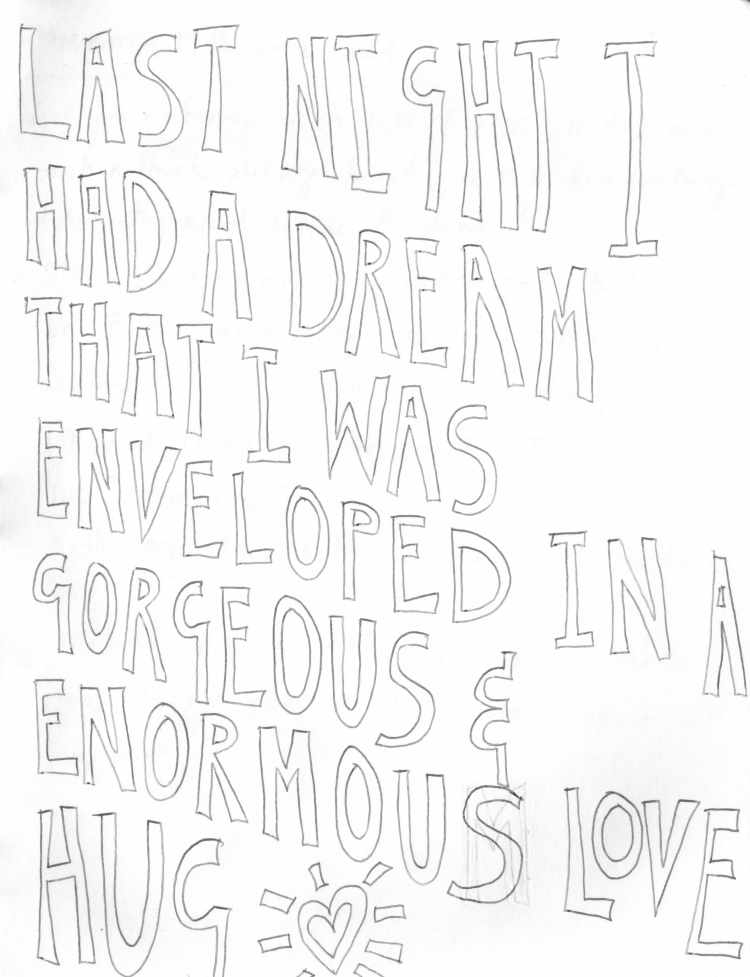 LAST NIGHT I
HAD A DREAM
THAT I WAS
ENVELOPED IN A
GORGEOUS &
ENORMOUS LOVE
HUG